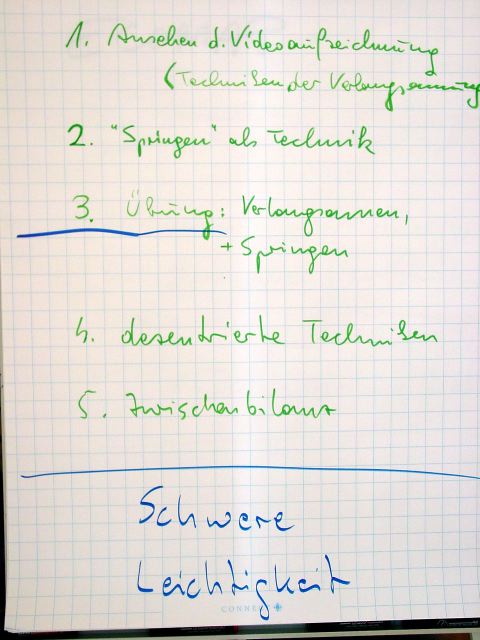 1. Ansehen d. Videoaufzeichnung
(Techniken der Verlangsamung
2. "Springen" als Technik
3. Übung: Verlangsamen,
+ Springen
4. dezentrierte Techniken
5. Zwischenbilanz
Schwere
Leichtigkeit